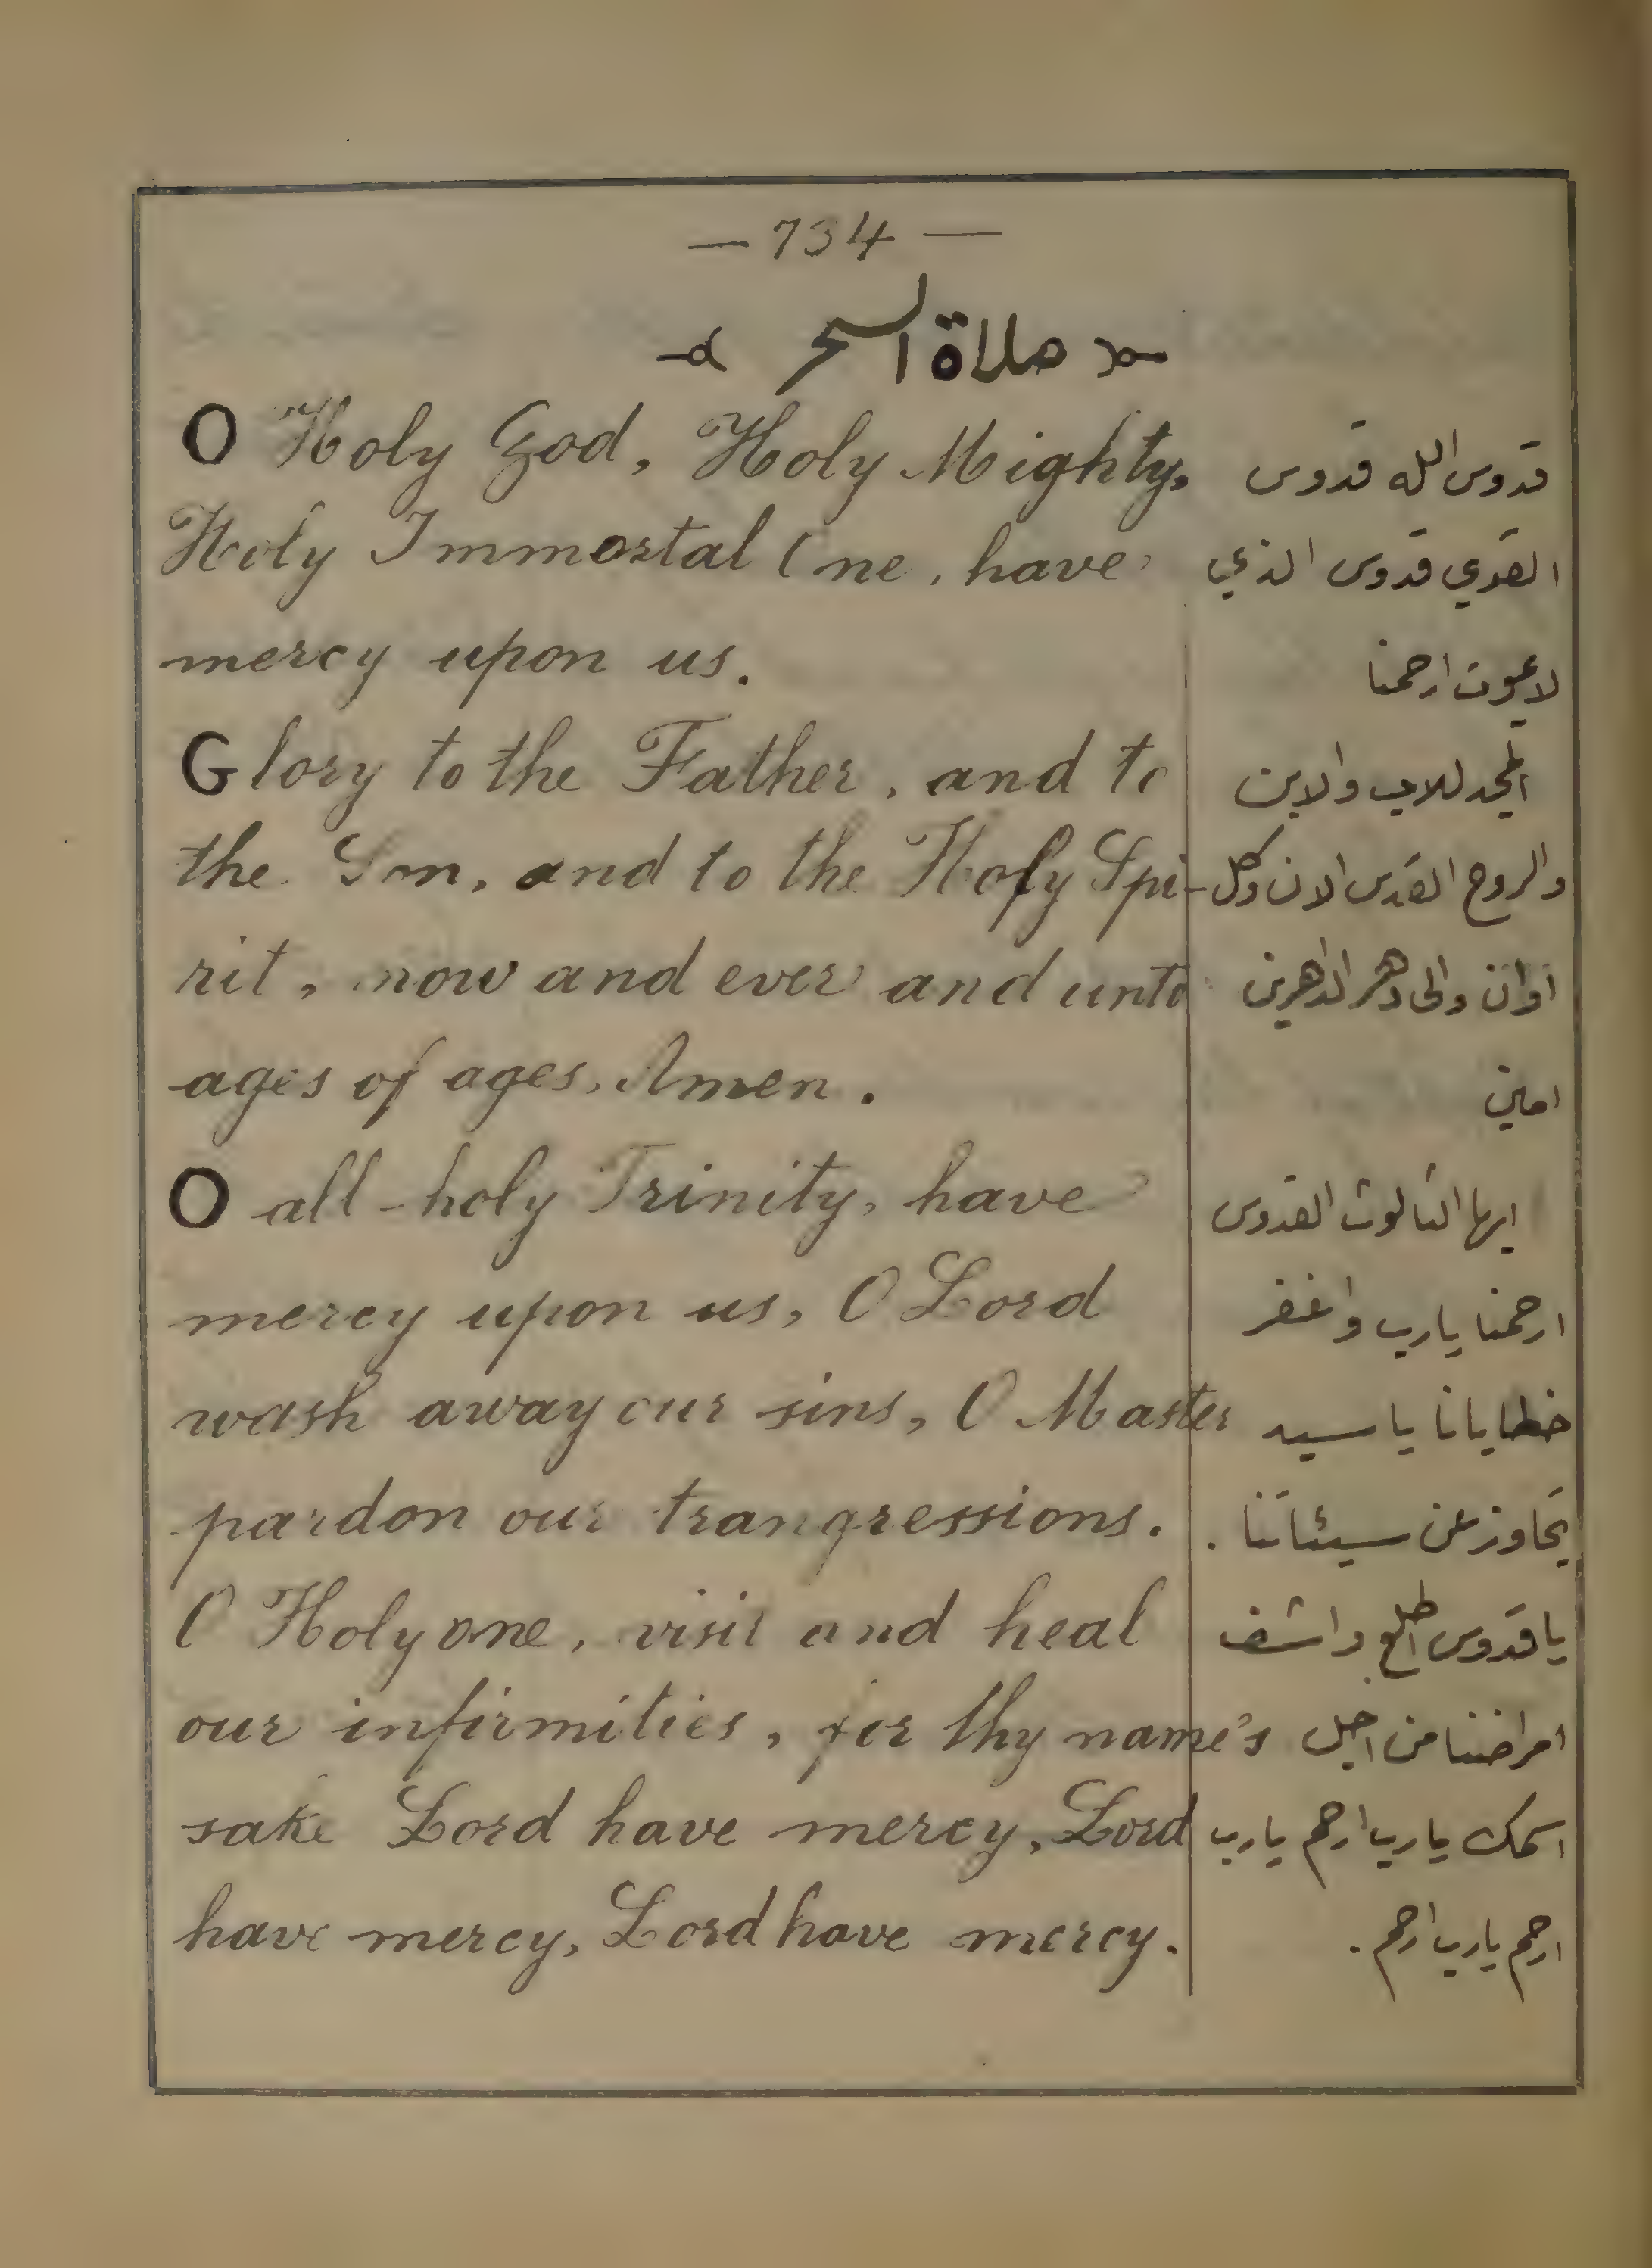 — 734 —
صلاة السحر
O Holy God, Holy Mighty,
Holy Immortal One, have
mercy upon us.
Glory to the Father, and to
the Son, and to the Holy Spi-
rit, now and ever and unto
ages of ages, Amen.
O all-holy Trinity, have
mercy upon us, O Lord
wash away our sins, O Master
pardon our trangressions.
O Holy one, visit and heal
our infirmities, for thy name's
sake Lord have mercy, Lord
have mercy, Lord have mercy.
قدوس الله قدوس
القوي قدوس الذي
لا يموت ارحمنا
المجد للاب والابن
والروح القدس الان وكل
اوان والى دهر الداهرين
امين
ايها الثالوث القدوس
ارحمنا يارب واغفر
خطايانا يا سيد
تجاوز عن سيئاتنا .
يا قدوس اطلع واشف
امراضنا من اجل
اسمك يارب ارحم يارب
ارحم يارب ارحم .